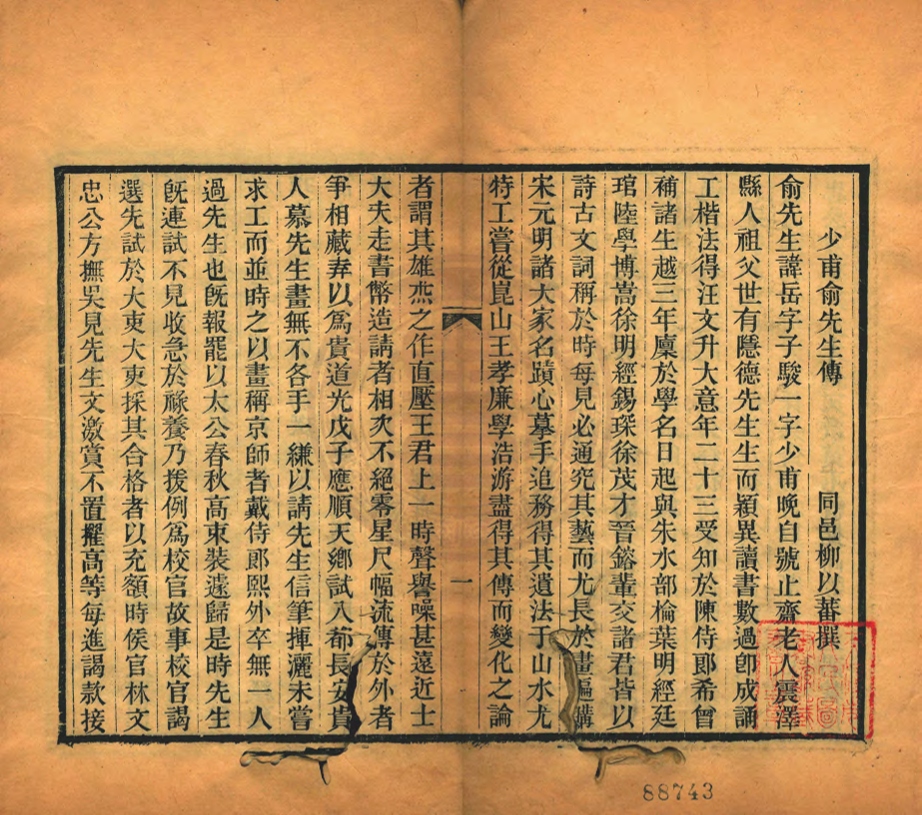 少甫俞先生傳　同邑柳以蕃撰
俞先生諱岳字子駿一字少甫晚自號止齋老人震澤
縣人祖父世有隱德先生生而穎異讀書數過卽成誦
工楷法得汪文升大意年二十三受知於陳侍郞希曾
補諸生越三年廩於學名日起與朱水部棆葉明經廷
琯陸學博嵩徐明經錫琛徐茂才晉鎔輩交諸君皆以
詩古文詞稱於時每見必通究其藝而尤長於畫徧購
宋元明諸大家名蹟心摹手追務得其遺法于山水尤
特工嘗從崑山王孝廉學浩游盡得其傳而變化之論
一
者謂其雄杰之作直壓王君上一時聲譽噪甚遠近士
大夫走書幣造請者相次不絕零星尺幅流傳於外者
爭相藏弆以爲貴道光戊子應順天鄕試入都長安貴
人慕先生畫無不各手一縑以請先生信筆揮灑未嘗
求工而並時之以畫稱京師者戴侍郞熙外卒無一人
過先生也旣報罷以太公春秋高束裝遽歸是時先生
旣連試不見收急於祿養乃援例爲校官故事校官謁
選先試於大吏大吏採其合格者以充額時侯官林文
忠公方撫吳見先生文激賞不置擢高等每進謁款接
88743